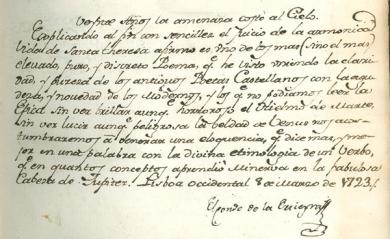 Vostras Años la amenaza corto al Cielo.
Explicando al fin con sencillez el Juicio de la armonica
Vida de Santa Theresa afirmo es uno de los mas (sino el mas)
elevado, puro, y discreto Poema, q̃ he visto uniendo la clari-
dad, y pureza de los antiguos Poetas Castellanos con la agu-
deza, y novedad de los Modernos, y los q̃ no podiamos leer la
Epica sin ver brillar aunq̃ horroroso el de Marte,
sin ver lucir aunq̃ peligrosa la beldad de Venus nos acos-
tumbraremos a venerar una eloquencia, q̃ dice mas, y me-
jor en una palabra con la divina etimologia de un Verbo,
q̃ en quantos conceptos aprendio Minerva en la fabulosa
Cabeza de Jupiter. Lisboa Occidental 8 de Marzo de 1723.
El Conde de la